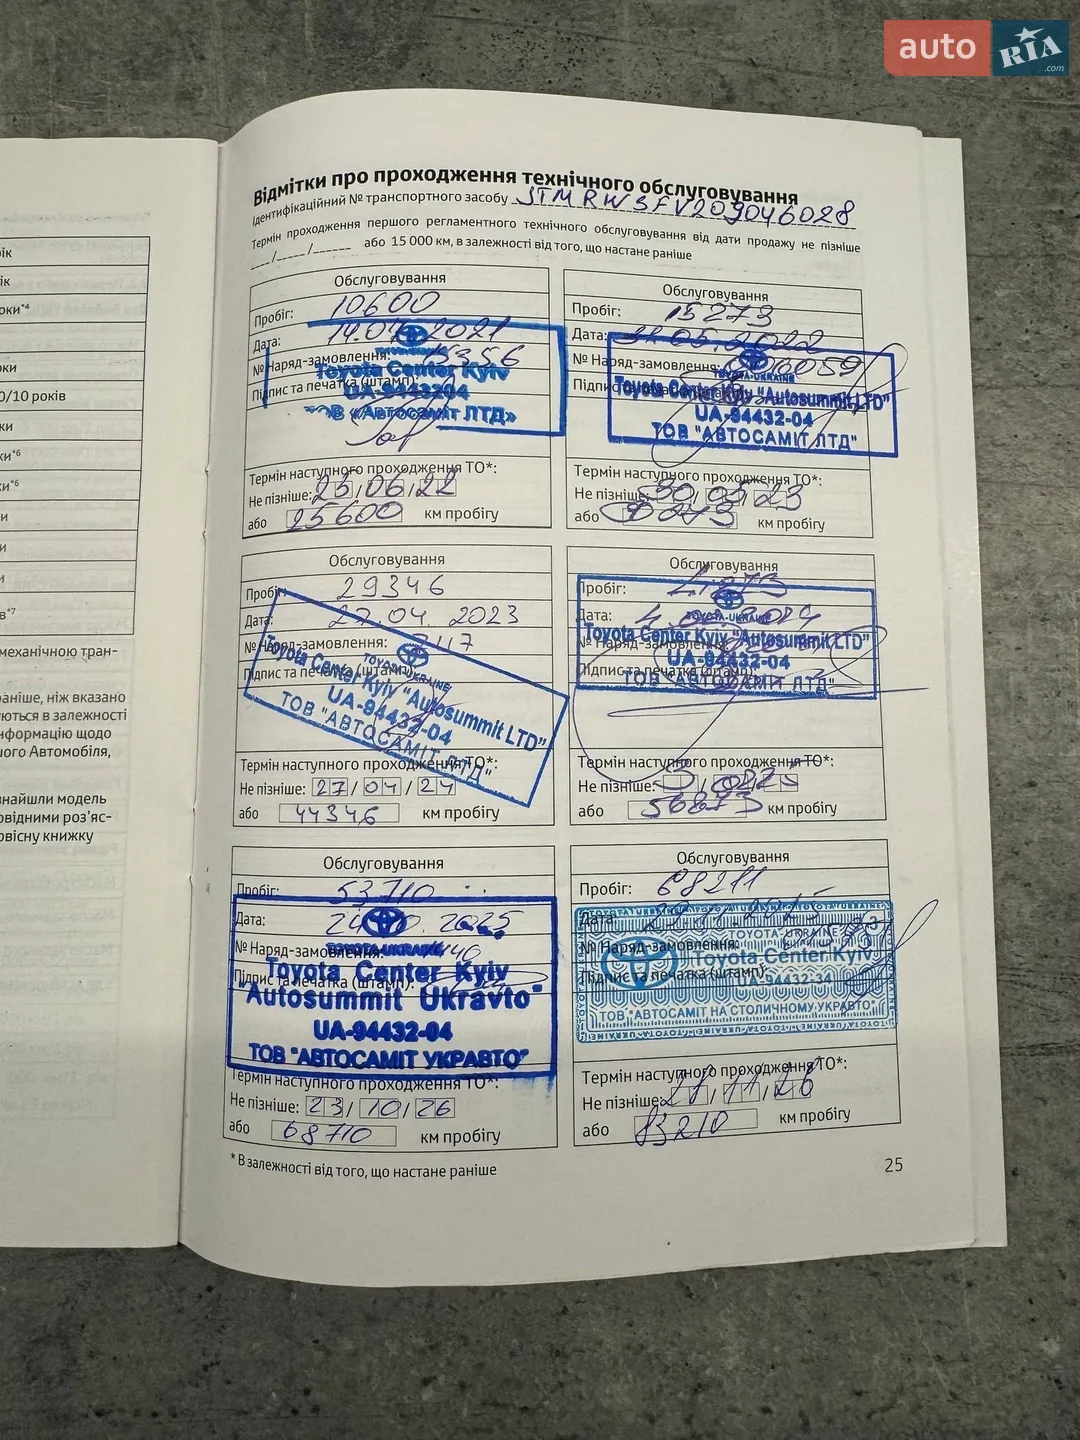 auto RIA.com
Відмітки про проходження технічного обслуговування
Ідентифікаційний № транспортного засобу JTMRW3FV209046028
Термін проходження першого регламентного технічного обслуговування від дати продажу не пізніше
/ / або 15 000 км, в залежності від того, що настане раніше
Обслуговування
Пробіг: 10600
Дата: 2021
№ Наряд-замовлення: 15356
Підпис та печатка (штамп):
Toyota Center Kyiv
UA-9443204
ТОВ «Автосаміт ЛТД»
Термін наступного проходження ТО*:
Не пізніше: 23/06/22
або 25600 км пробігу
Обслуговування
Пробіг: 15273
Дата: 31.05.2022
№ Наряд-замовлення:
TOYOTA-UKRAINE
Toyota Center Kyiv "Autosummit LTD"
UA-94432-04
ТОВ "АВТОСАМІТ ЛТД"
Термін наступного проходження ТО*:
Не пізніше: 30/05/23
або 30273 км пробігу
Обслуговування
Пробіг: 29346
Дата: 27.04.2023
№ Наряд-замовлення: 7117
Підпис та печатка (штамп):
TOYOTA-UKRAINE
Toyota Center Kyiv "Autosummit LTD"
UA-94432-04
ТОВ "АВТОСАМІТ ЛТД"
Термін наступного проходження ТО*:
Не пізніше: 27/04/24
або 44346 км пробігу
Обслуговування
Пробіг:
Дата: 2024
№ Наряд-замовлення:
Підпис та печатка (штамп):
TOYOTA-UKRAINE
Toyota Center Kyiv "Autosummit LTD"
UA-94432-04
ТОВ "АВТОСАМІТ ЛТД"
Термін наступного проходження ТО*:
Не пізніше:
або 56873 км пробігу
Обслуговування
Пробіг: 53710
Дата: 2025
№ Наряд-замовлення:
Підпис та печатка (штамп):
TOYOTA-UKRAINE
Toyota Center Kyiv
"Autosummit Ukravto"
UA-94432-04
ТОВ "АВТОСАМІТ УКРАВТО"
Термін наступного проходження ТО*:
Не пізніше: 23/10/26
або 68710 км пробігу
Обслуговування
Пробіг: 68211
Дата: 11.2025
№ Наряд-замовлення:
Підпис та печатка (штамп):
TOYOTA-UKRAINE
Toyota Center Kyiv
UA-94432-34
ТОВ "АВТОСАМІТ НА СТОЛИЧНОМУ УКРАВТО"
Термін наступного проходження ТО*:
Не пізніше: 21/11/26
або 83210 км пробігу
* В залежності від того, що настане раніше
25
0/10 років
механічною тран-
раніше, ніж вказано
ються в залежності
нформацію щодо
Автомобіля,
знайшли модель
овідними роз'яс-
книжку